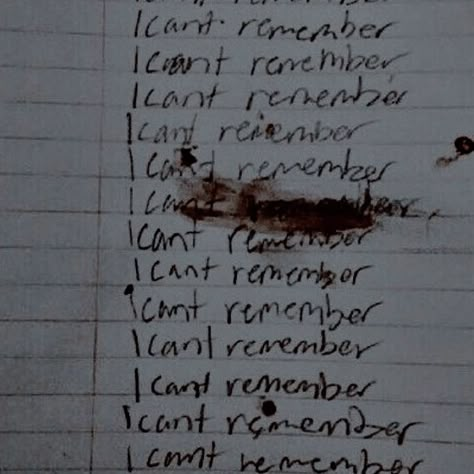 I cant remember
I cant remember
I cant remember
I cant remember
I cant remember
I cant
I cant remember
I cant remember
I cant remember
I cant remember
I cant remember
I cant remember
I cant remember